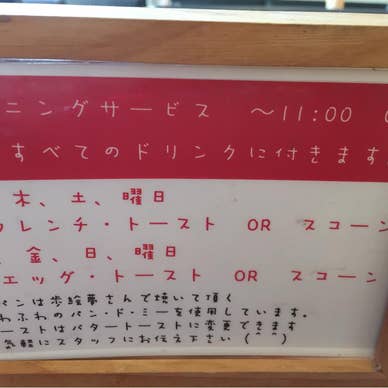 ニングサービス ～11:00 (
すべてのドリンクに付きます
木、土、曜日
フレンチ・トースト OR スコーン
、金、日、曜日
エッグ・トースト OR スコーン
パンは歩絵夢さんで焼いて頂く
わふわのパン・ド・ミーを使用しています。
ーストはバタートーストに変更できます
気軽にスタッフにお伝え下さい (^^)